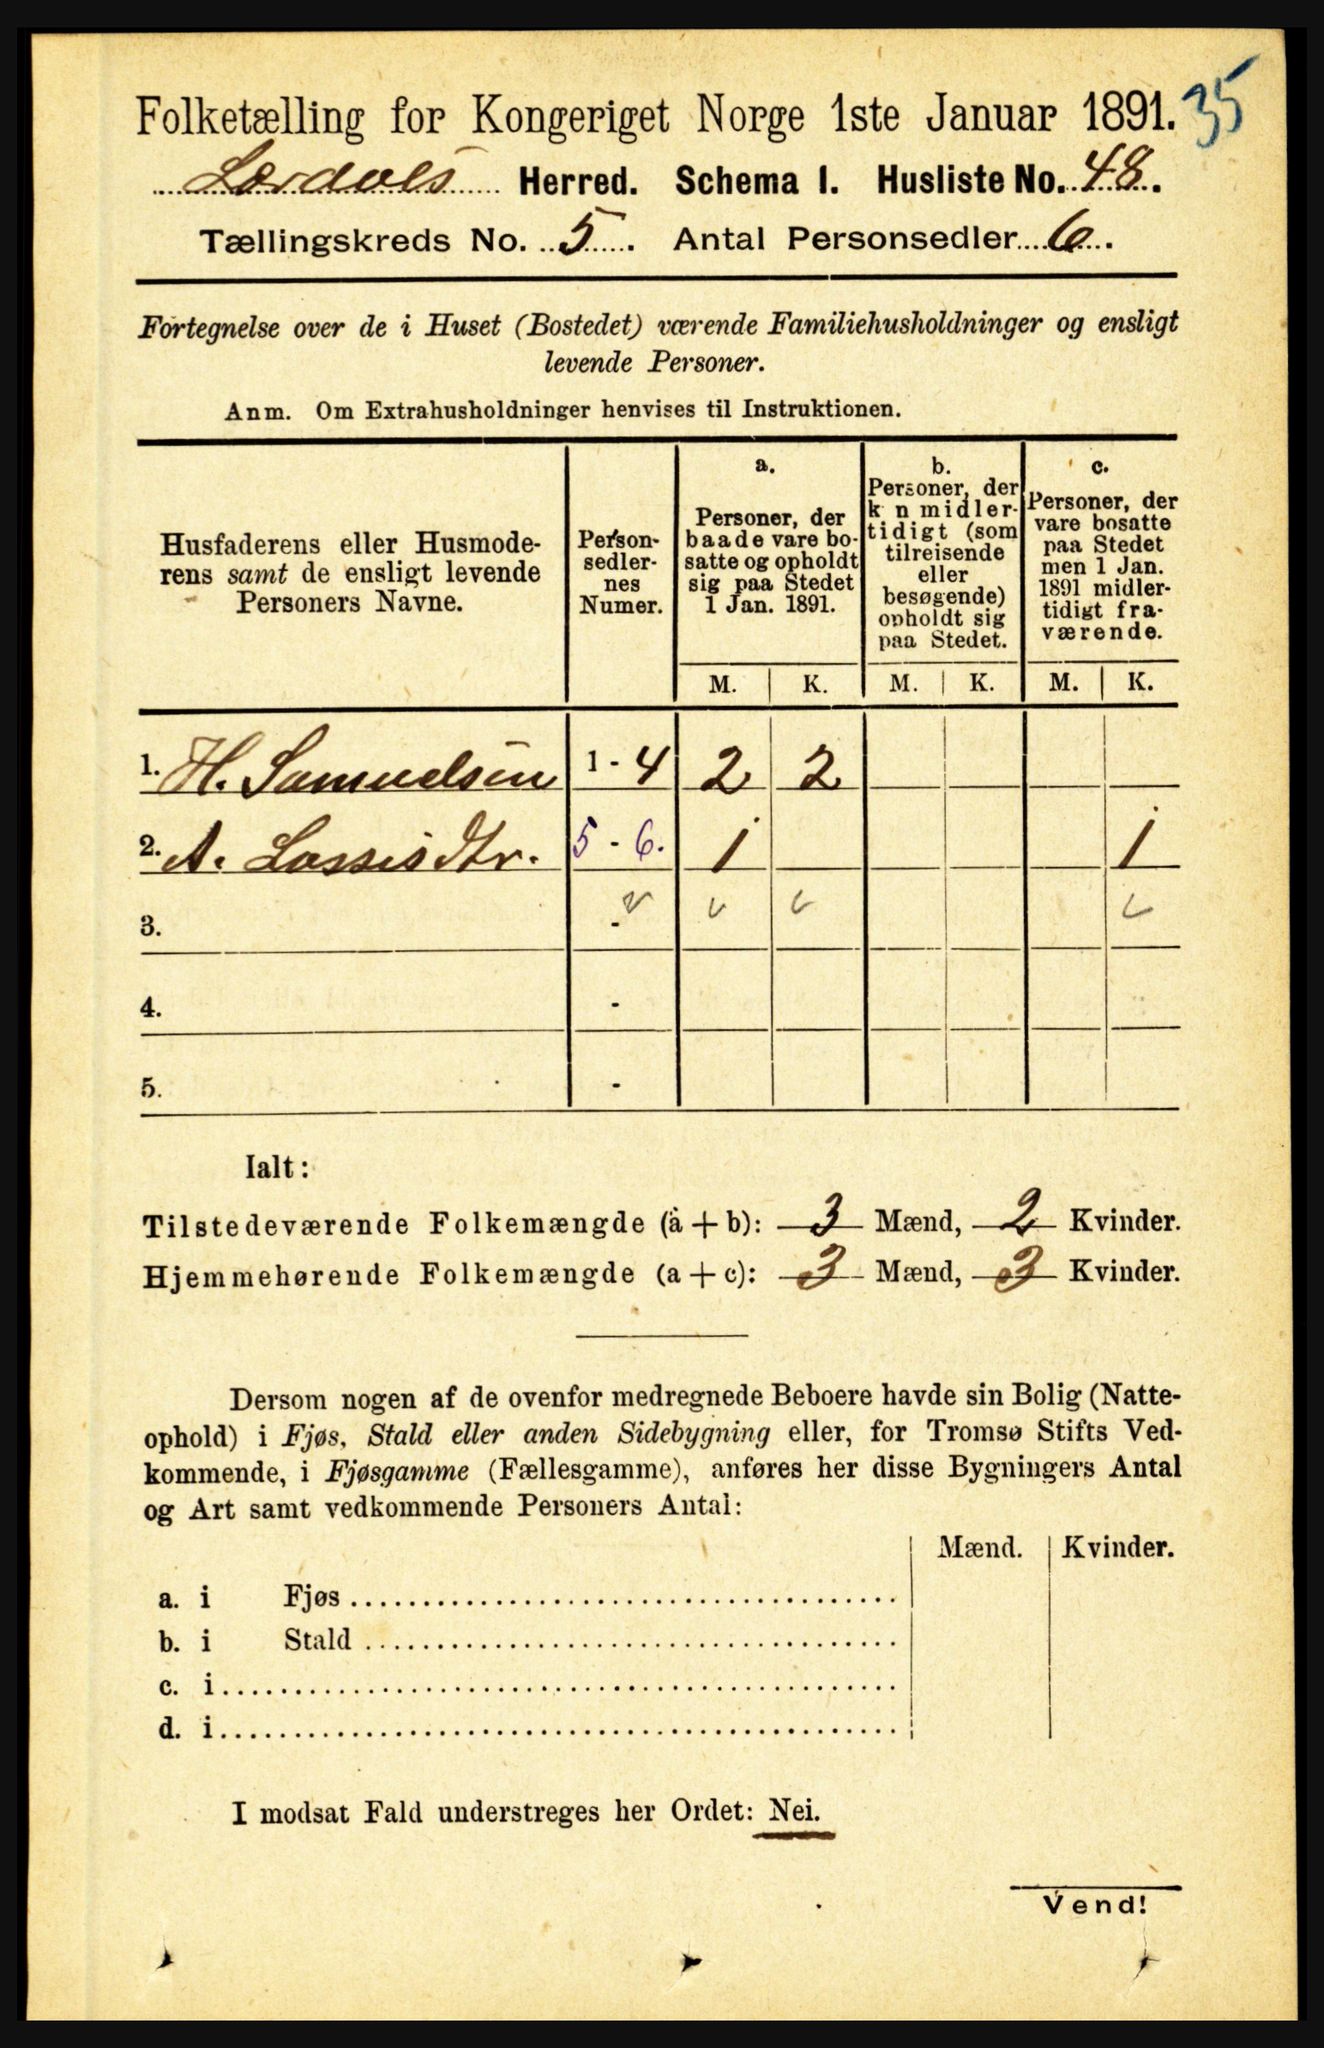 Folketælling for Kongeriget Norge 1ste Januar 1891. 35
Lærdals Herred. Schema I. Husliste No. 48.
Tællingskreds No. 5. Antal Personsedler 6.
Fortegnelse over de i Huset (Bostedet) værende Familiehusholdninger og ensligt
levende Personer.
Anm. Om Extrahusholdninger henvises til Instruktionen.
Husfaderens eller Husmode-
rens samt de ensligt levende
Personers Navne.
Person-
sedler-
nes
Numer.
a.
Personer, der
baade vare bo-
satte og opholdt
sig paa Stedet
1 Jan. 1891.
b.
Personer, der
k n midler-
tidigt (som
tilreisende
eller
besøgende)
opholdt sig
paa Stedet.
c.
Personer, der
vare bosatte
paa Stedet
men 1 Jan.
1891 midler-
tidigt fra-
værende.
M. K. M. K. M. K.
1. H. Samuelsen 1 - 4 2 2
2. A. Lassesdtr. 5 - 6. 1 1
3. -
4. -
5. -
Ialt:
Tilstedeværende Folkemængde (a + b): 3 Mænd, 2 Kvinder.
Hjemmehørende Folkemængde (a + c): 3 Mænd, 3 Kvinder.
Dersom nogen af de ovenfor medregnede Beboere havde sin Bolig (Natte-
ophold) i Fjøs, Stald eller anden Sidebygning eller, for Tromsø Stifts Ved-
kommende, i Fjøsgamme (Fællesgamme), anføres her disse Bygningers Antal
og Art samt vedkommende Personers Antal:
Mænd. Kvinder.
a. i Fjøs
b. i Stald
c. i
d. i
I modsat Fald understreges her Ordet: Nei.
Vend!